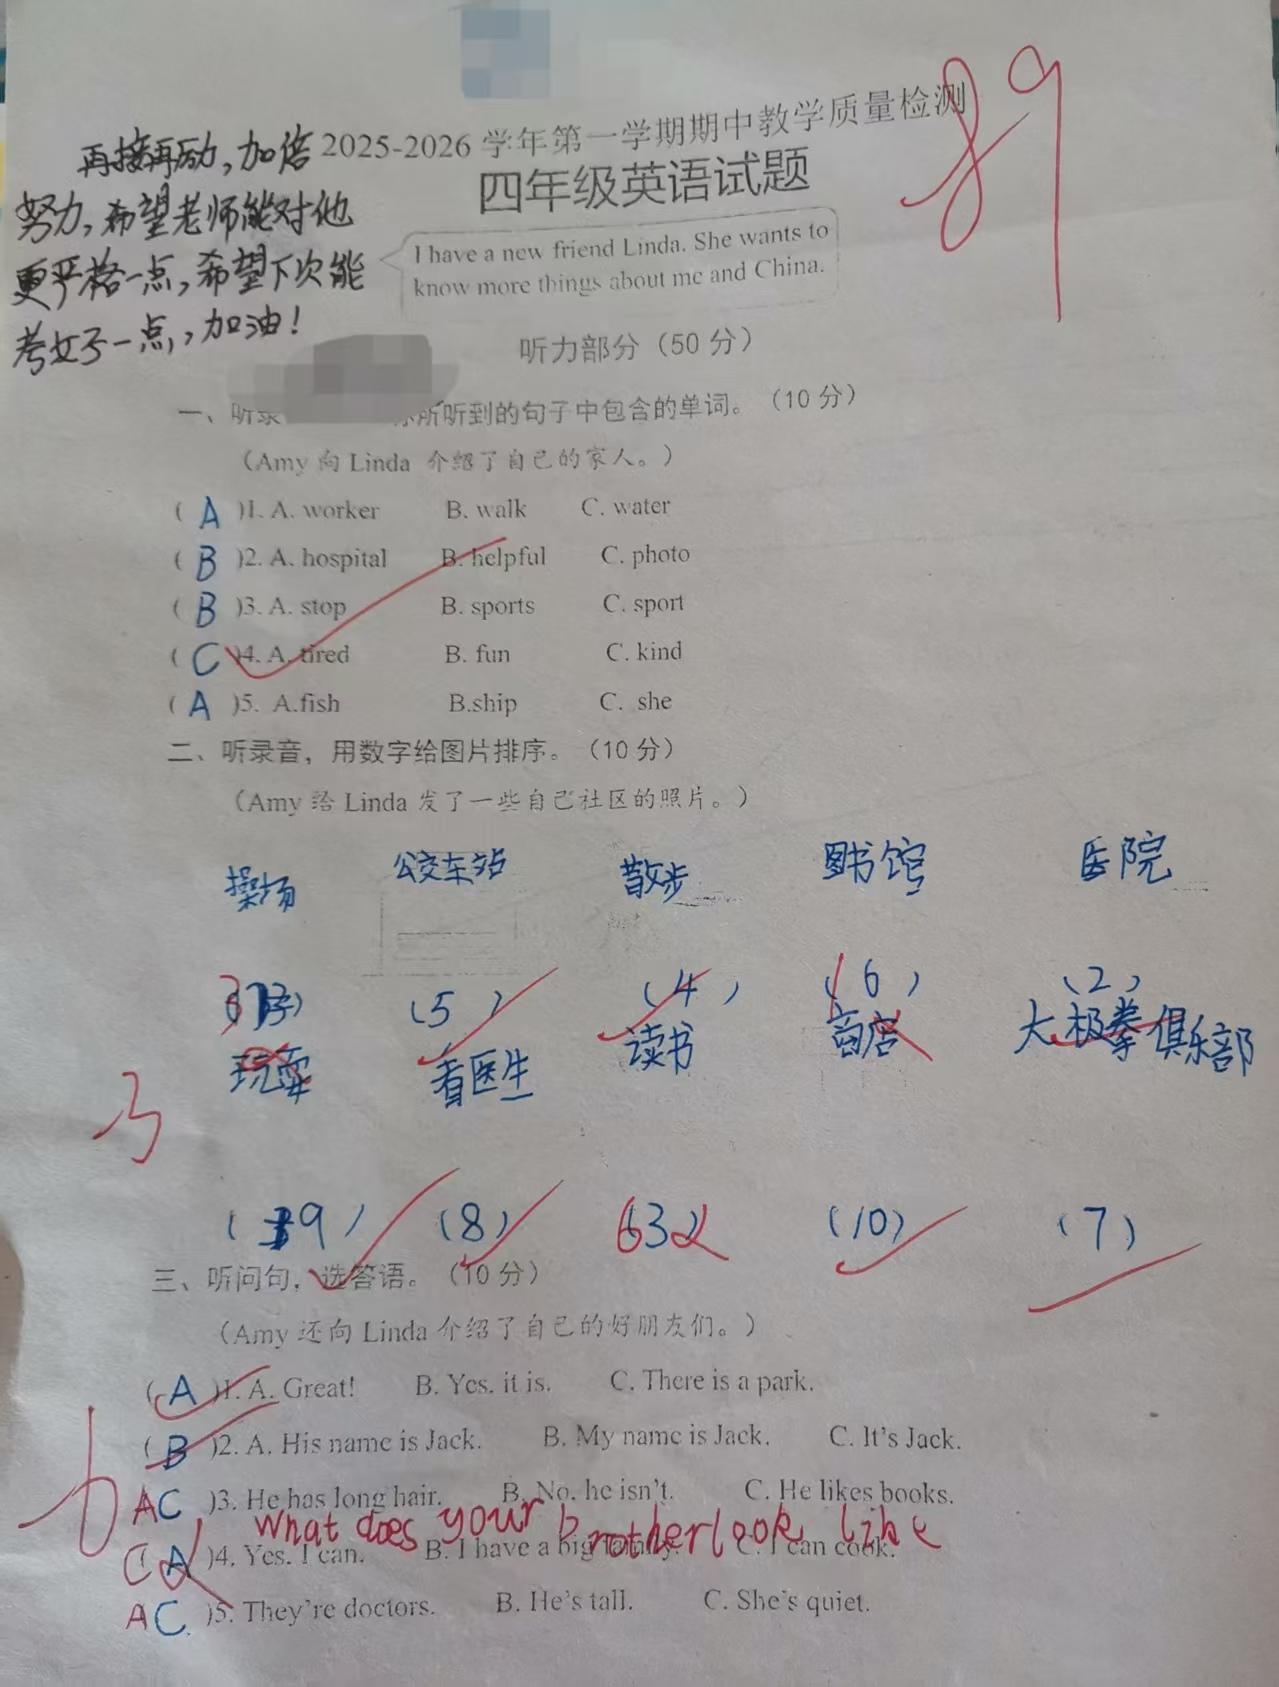 89
2025-2026 学年第一学期期中教学质量检测
四年级英语试题
再接再励，加倍
努力，希望老师能对他
更严格一点，希望下次能
考好一点，加油！
I have a new friend Linda. She wants to
know more things about me and China.
听力部分（50 分）
一、听录 所听到的句子中包含的单词。（10 分）
（Amy 向 Linda 介绍了自己的家人。）
( A )1. A. worker B. walk C. water
( B )2. A. hospital B. helpful C. photo
( B )3. A. stop B. sports C. sport
( C )4. A. tired B. fun C. kind
( A )5. A.fish B.ship C. she
二、听录音，用数字给图片排序。（10 分）
（Amy 给 Linda 发了一些自己社区的照片。）
操场 公交车站 散步 图书馆 医院
(5) (4) (6) (2)
看医生 读书 商店 太极拳俱乐部
3
(9) (8) 6 (3) (10) (7)
三、听问句，选答语。（10 分）
（Amy 还向 Linda 介绍了自己的好朋友们。）
( A )1. A. Great! B. Yes. it is. C. There is a park.
( B )2. A. His name is Jack. B. My name is Jack. C. It's Jack.
6
A C )3. He has long hair. B. No, he isn't. C. He likes books.
What does your brother look like
C ( A )4. Yes. I can. B. I have a big family. C. I can cook.
A C )5. They're doctors. B. He's tall. C. She's quiet.